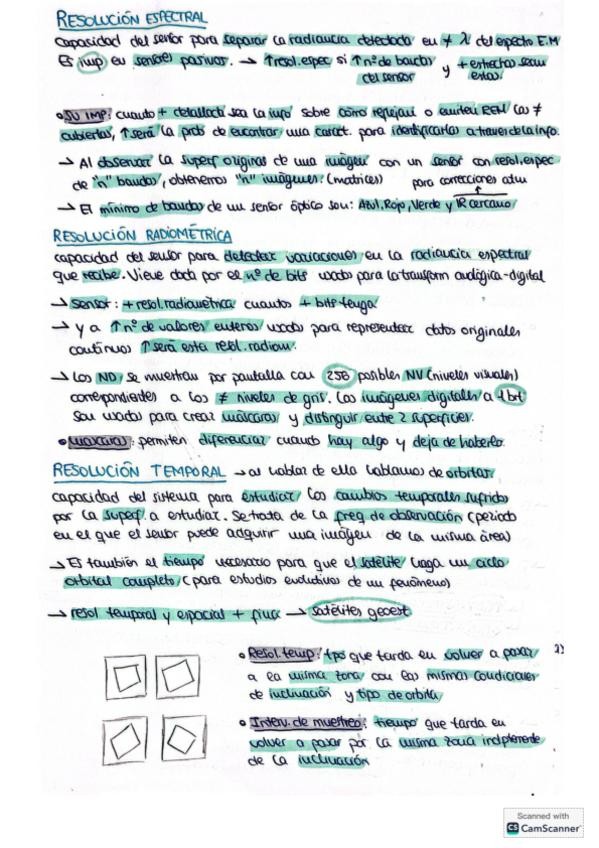 RESOLUCIÓN ESPECTRAL
capacidad del sensor para separar la radiancia detectada en ≠ λ del espectro E.M
Es imp en sensores pasivos. → ↑ resol. espec si ↑ nº de bandas y + estrechas sean
del sensor estas.
• SU IMP: cuanto + detallada sea la info sobre cómo reflejan o emiten REM las ≠
cubiertas, ↑ será la prob de encontrar una caract. para identificarlas a traves de la info.
→ Al observar la superf origina de una imágen con un sensor con resol. espec
de "n" bandas, obtenemos "n" imágenes. (matrices) para correcciones atm
→ El mínimo de bandas de un sensor óptico son: Azul, Rojo, Verde y IR cercano
RESOLUCIÓN RADIOMÉTRICA
capacidad del sensor para detectar variaciones en la radiancia espectral
que recibe. Viene dada por el nº de bits usados para la transform analógica-digital
→ Sensor: + resol. radiométrica cuantos + bits tenga
→ y a ↑ nº de valores enteros usados para representar datos originales
continuos ↑ será esta resol. radiom.
→ Los ND se muestran por pantalla con 256 posibles NV (niveles visuales)
correspondientes a los ≠ niveles de gris. Las imágenes digitales a 1 bit
son usadas para crear máscaras y distinguir entre 2 superficies.
• máscaras: permiten diferenciar cuando hay algo y deja de haberlo.
RESOLUCIÓN TEMPORAL → al hablar de ella hablamos de orbitas
capacidad del sistema para estudiar los cambios temporales sufridos
por la superf. a estudiar. Se trata de la freq de observación (periodo
en el que el sensor puede adquirir una imágen de la misma área)
→ Es también el tiempo necesario para que el satélite haga un ciclo
orbital completo (para estudios evolutivos de un fenómeno)
→ resol temporal y espacial + fina → satélites geoest
• Resol. temp: tpo que tarda en volver a pasar
a la misma zona con las mismas condiciones
de inclinación y tipo de orbita
• Interv. de muestreo: tiempo que tarda en
volver a pasar por la misma zona indptemente
de la inclinación
Scanned with
CS CamScanner